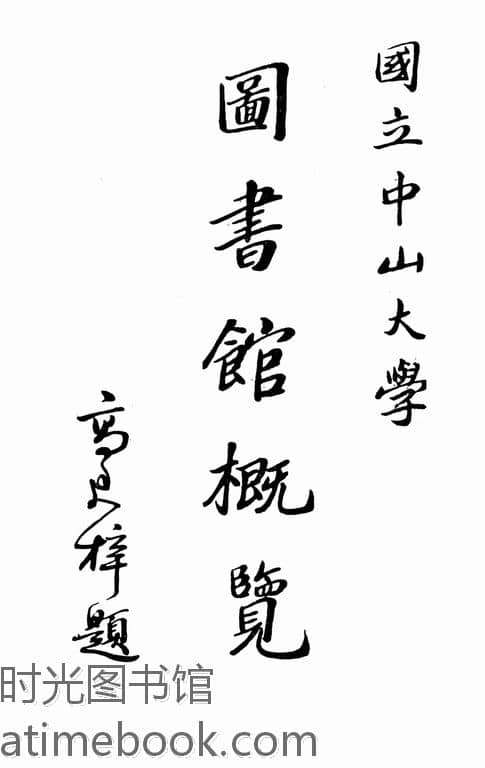 國立中山大學
圖書館概覽
高良梓題
时光图书馆
atimebook.com